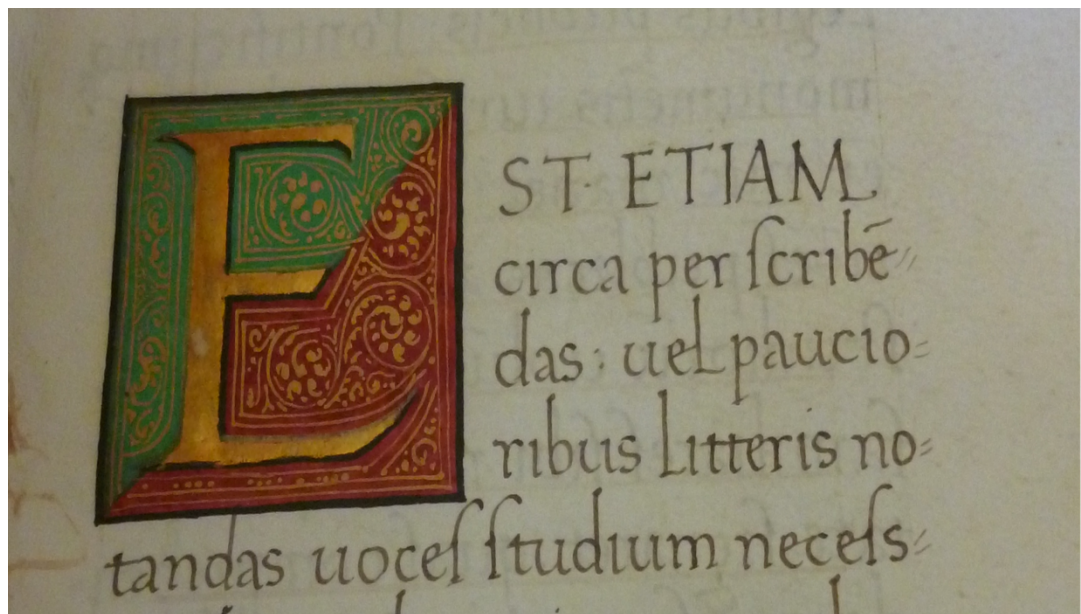 EST· ETIAM
circa per ſcribē//
das: uel paucio=
ribus litteris no=
tandas uoceſ ſtudium neceſs=